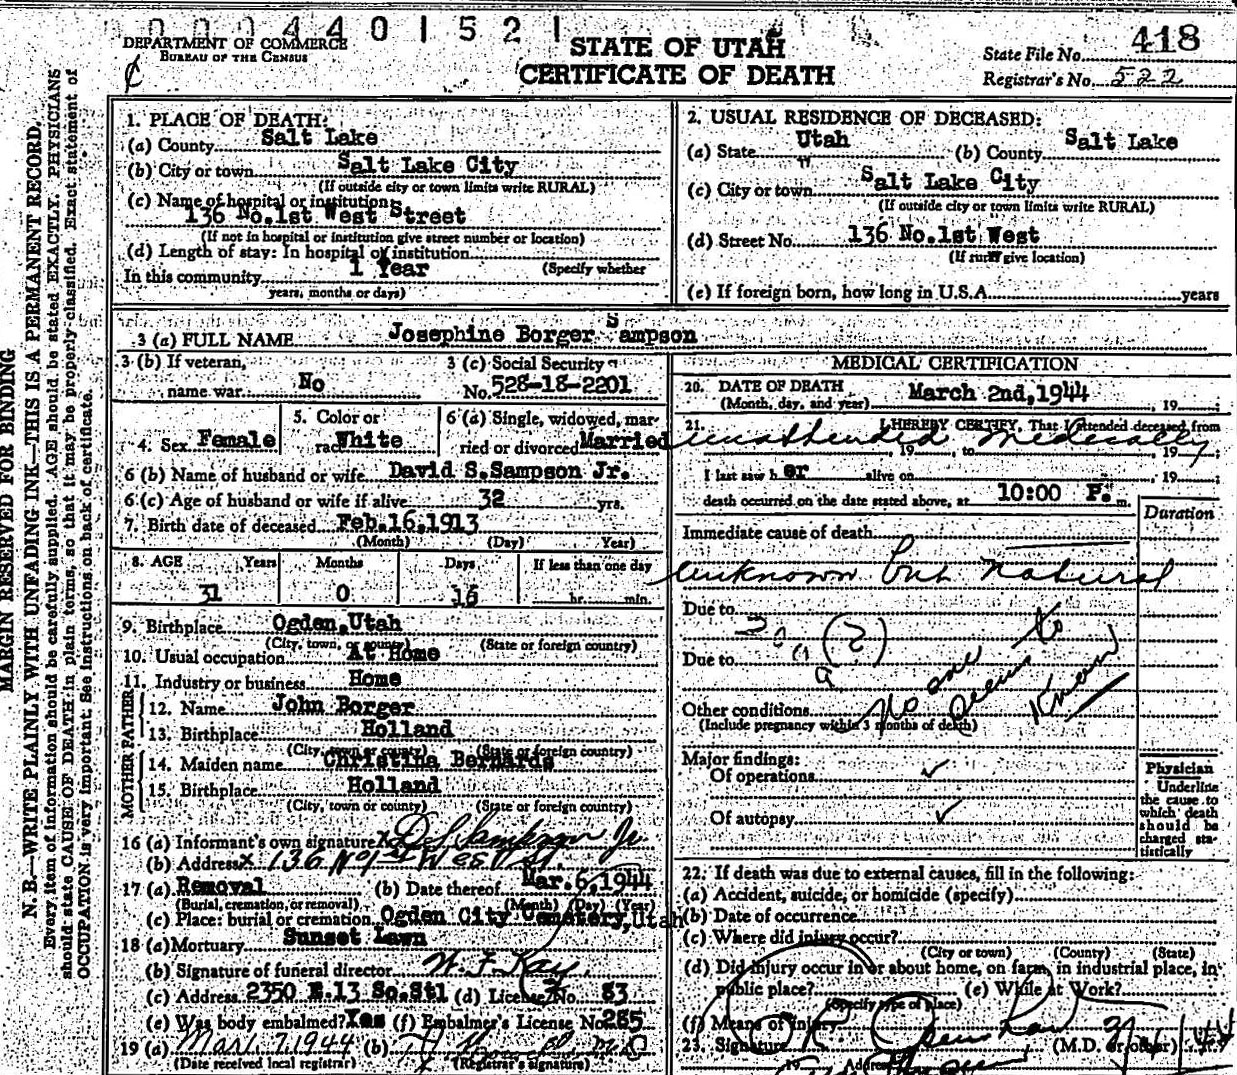 0004401521
DEPARTMENT OF COMMERCE
BUREAU OF THE CENSUS
STATE OF UTAH
CERTIFICATE OF DEATH
State File No. 418
Registrar's No. 522
MARGIN RESERVED FOR BINDING
N. B.—WRITE PLAINLY WITH UNFADING INK—THIS IS A PERMANENT RECORD.
Every item of information should be carefully supplied. AGE should be stated EXACTLY. PHYSICIANS
should state CAUSE OF DEATH in plain terms, so that it may be properly classified. Exact statement of
OCCUPATION is very important. See instructions on back of certificate.
1. PLACE OF DEATH:
(a) County Salt Lake
(b) City or town Salt Lake City
(If outside city or town limits write RURAL)
(c) Name of hospital or institution:
136 No.1st West Street
(If not in hospital or institution give street number or location)
(d) Length of stay: In hospital or institution
In this community 1 Year (Specify whether
years, months or days)
2. USUAL RESIDENCE OF DECEASED:
(a) State Utah (b) County Salt Lake
(c) City or town Salt Lake City
(If outside city or town limits write RURAL)
(d) Street No. 136 No.1st West
(If rural give location)
(e) If foreign born, how long in U.S.A. years
3 (a) FULL NAME Josephine Borger Sampson
3 (b) If veteran, name war No
3 (c) Social Security No. 528-18-2201
4. Sex Female
5. Color or race White
6 (a) Single, widowed, married or divorced Married
6 (b) Name of husband or wife David S.Sampson Jr.
6 (c) Age of husband or wife if alive 32 yrs.
7. Birth date of deceased Feb.16,1913
(Month) (Day) Year)
8. AGE Years Months Days If less than one day
31 0 16 hr. min.
9. Birthplace Ogden,Utah
(City, town, or county) (State or foreign country)
10. Usual occupation At Home
11. Industry or business Home
FATHER
12. Name John Borger
13. Birthplace Holland
(City, town or county) (State or foreign country)
MOTHER
14. Maiden name Christina Bernards
15. Birthplace Holland
(City, town or county) (State or foreign country)
16 (a) Informant's own signature x D S Sampson Jr
(b) Address x 136 No 1st West St.
17 (a) Removal (b) Date thereof Mar.6,1944
(Burial, cremation, or removal) (Month) (Day) (Year)
(c) Place: burial or cremation Ogden City Cemetery,Utah
18 (a) Mortuary Sunset Lawn
(b) Signature of funeral director W. F. Kay
(c) Address 2350 E.13 So.Stl (d) License No. 83
(e) Was body embalmed? Yes (f) Embalmer's License No 285
19 (a) Mar. 7, 1944 (b)
(Date received local registrar) (Registrar's signature)
MEDICAL CERTIFICATION
20. DATE OF DEATH March 2nd,1944
(Month, day, and year) , 19
21. I HEREBY CERTIFY, That I attended deceased from
unattended medically
, 19 , to , 19
I last saw her alive on , 19
death occurred on the date stated above, at 10:00 P. m.
Duration
Immediate cause of death
Unknown but Natural
Due to
(?)
Due to
No one seems to know
Other conditions
(Include pregnancy within 3 months of death)
Major findings:
Of operations ✓
Of autopsy ✓
Physician
Underline
the cause to
which death
should be
charged sta-
tistically
22. If death was due to external causes, fill in the following:
(a) Accident, suicide, or homicide (specify)
(b) Date of occurrence
(c) Where did injury occur?
(City or town) (County) (State)
(d) Did injury occur in or about home, on farm, in industrial place, in
public place? (e) While at Work?
(Specify type of place)
(f) Means of injury
23. Signature (M.D. or other)
Address